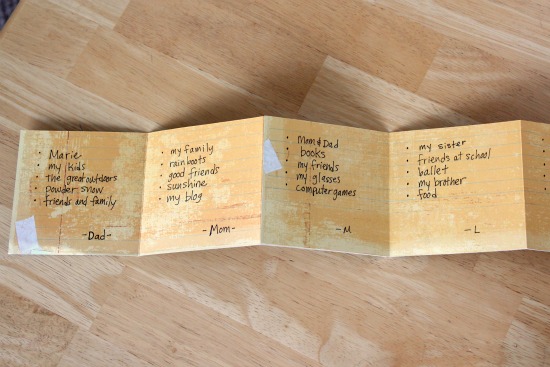 • Marie
• my kids
• The great outdoors
• powder snow
• friends and family
-Dad-
• my family
• rainboots
• good friends
• sunshine
• my blog
-Mom-
• Mom & Dad
• books
• my friends
• my glasses
• computer games
-M
• my sister
• friends at school
• ballet
• my brother
• food
-L